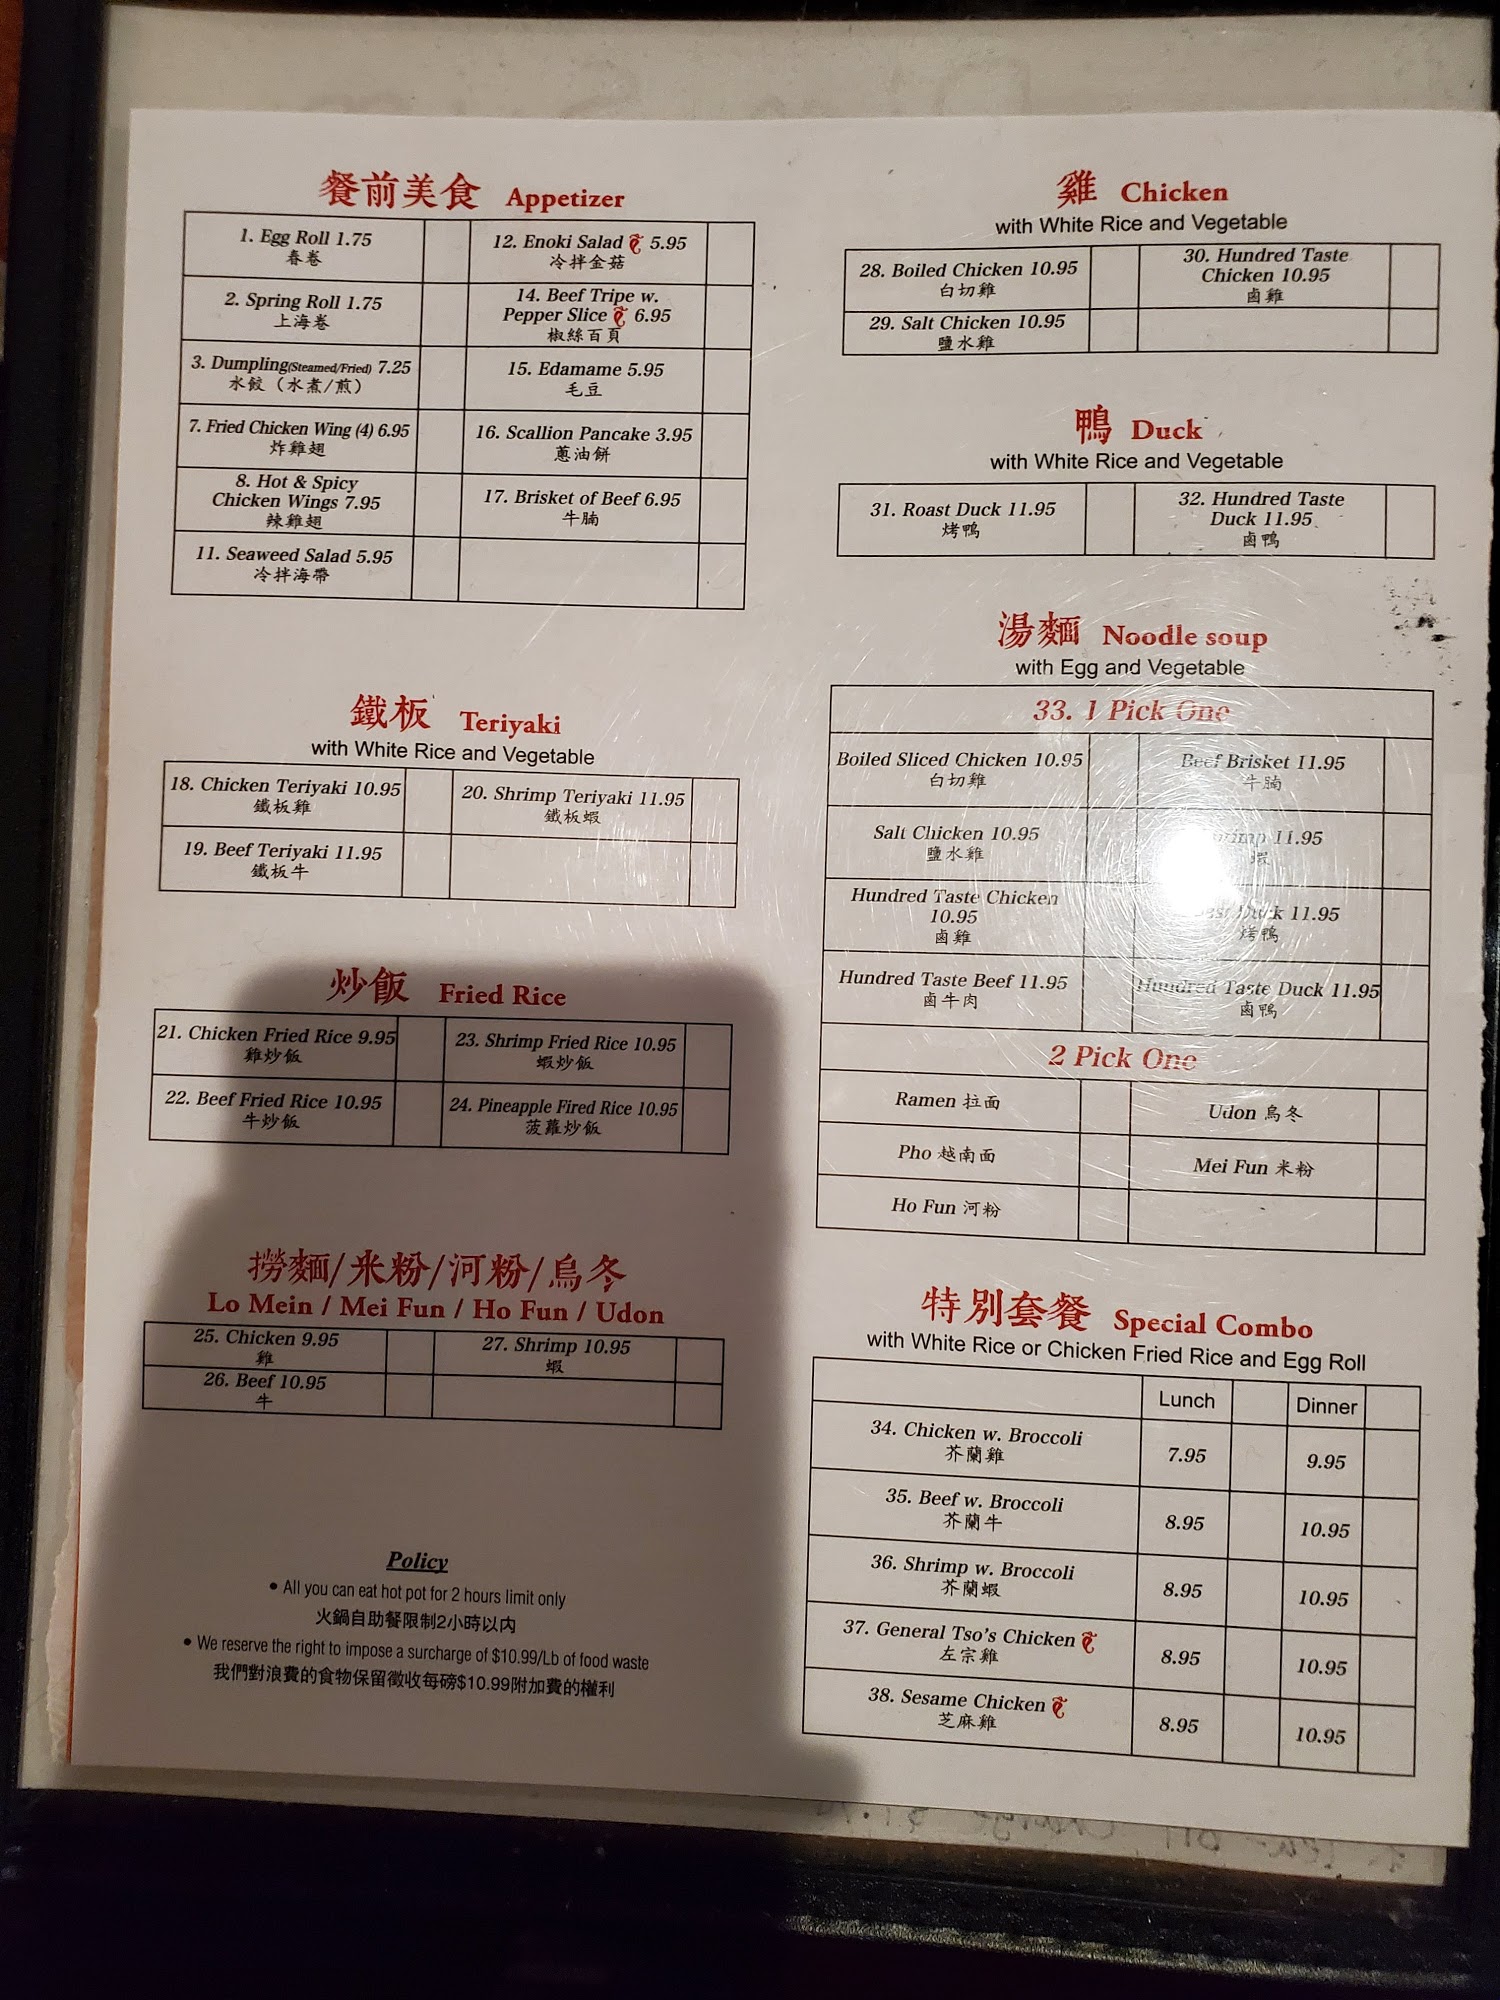 餐前美食 Appetizer
1. Egg Roll 1.75
春卷
12. Enoki Salad 5.95
冷拌金菇
2. Spring Roll 1.75
上海卷
14. Beef Tripe w.
Pepper Slice 6.95
椒絲百頁
3. Dumpling(Steamed/Fried) 7.25
水餃（水煮/煎）
15. Edamame 5.95
毛豆
7. Fried Chicken Wing (4) 6.95
炸雞翅
16. Scallion Pancake 3.95
蔥油餅
8. Hot & Spicy
Chicken Wings 7.95
辣雞翅
17. Brisket of Beef 6.95
牛腩
11. Seaweed Salad 5.95
冷拌海帶
鐵板 Teriyaki
with White Rice and Vegetable
18. Chicken Teriyaki 10.95
鐵板雞
20. Shrimp Teriyaki 11.95
鐵板蝦
19. Beef Teriyaki 11.95
鐵板牛
炒飯 Fried Rice
21. Chicken Fried Rice 9.95
雞炒飯
23. Shrimp Fried Rice 10.95
蝦炒飯
22. Beef Fried Rice 10.95
牛炒飯
24. Pineapple Fired Rice 10.95
菠蘿炒飯
撈麵/米粉/河粉/烏冬
Lo Mein / Mei Fun / Ho Fun / Udon
25. Chicken 9.95
雞
27. Shrimp 10.95
蝦
26. Beef 10.95
牛
Policy
• All you can eat hot pot for 2 hours limit only
火鍋自助餐限制2小時以内
• We reserve the right to impose a surcharge of $10.99/Lb of food waste
我們對浪費的食物保留徵收每磅$10.99附加費的權利
雞 Chicken
with White Rice and Vegetable
28. Boiled Chicken 10.95
白切雞
30. Hundred Taste
Chicken 10.95
鹵雞
29. Salt Chicken 10.95
鹽水雞
鴨 Duck
with White Rice and Vegetable
31. Roast Duck 11.95
烤鴨
32. Hundred Taste
Duck 11.95
鹵鴨
湯麵 Noodle soup
with Egg and Vegetable
33. 1 Pick One
Boiled Sliced Chicken 10.95
白切雞
Beef Brisket 11.95
牛腩
Salt Chicken 10.95
鹽水雞
11.95
蝦
Hundred Taste Chicken
10.95
鹵雞
Duck 11.95
烤鴨
Hundred Taste Beef 11.95
鹵牛肉
Hundred Taste Duck 11.95
鹵鴨
2 Pick One
Ramen 拉面
Udon 烏冬
Pho 越南面
Mei Fun 米粉
Ho Fun 河粉
特別套餐 Special Combo
with White Rice or Chicken Fried Rice and Egg Roll
Lunch Dinner
34. Chicken w. Broccoli
芥蘭雞
7.95 9.95
35. Beef w. Broccoli
芥蘭牛
8.95 10.95
36. Shrimp w. Broccoli
芥蘭蝦
8.95 10.95
37. General Tso's Chicken
左宗雞
8.95 10.95
38. Sesame Chicken
芝麻雞
8.95 10.95